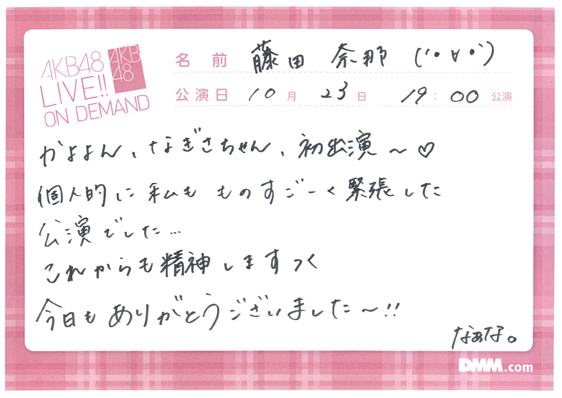 AKB48
LIVE!!
ON DEMAND
AKB
48
名前 藤田 奈那 ('•∀•')
公演日 10月 23日 19:00公演
かよよん、なぎさちゃん、初出演〜♡
個人的に私も ものすごーく緊張した
公演でした…
これからも精神しますっく
今日もありがとうございました〜!!
なぁな。
DMM.com